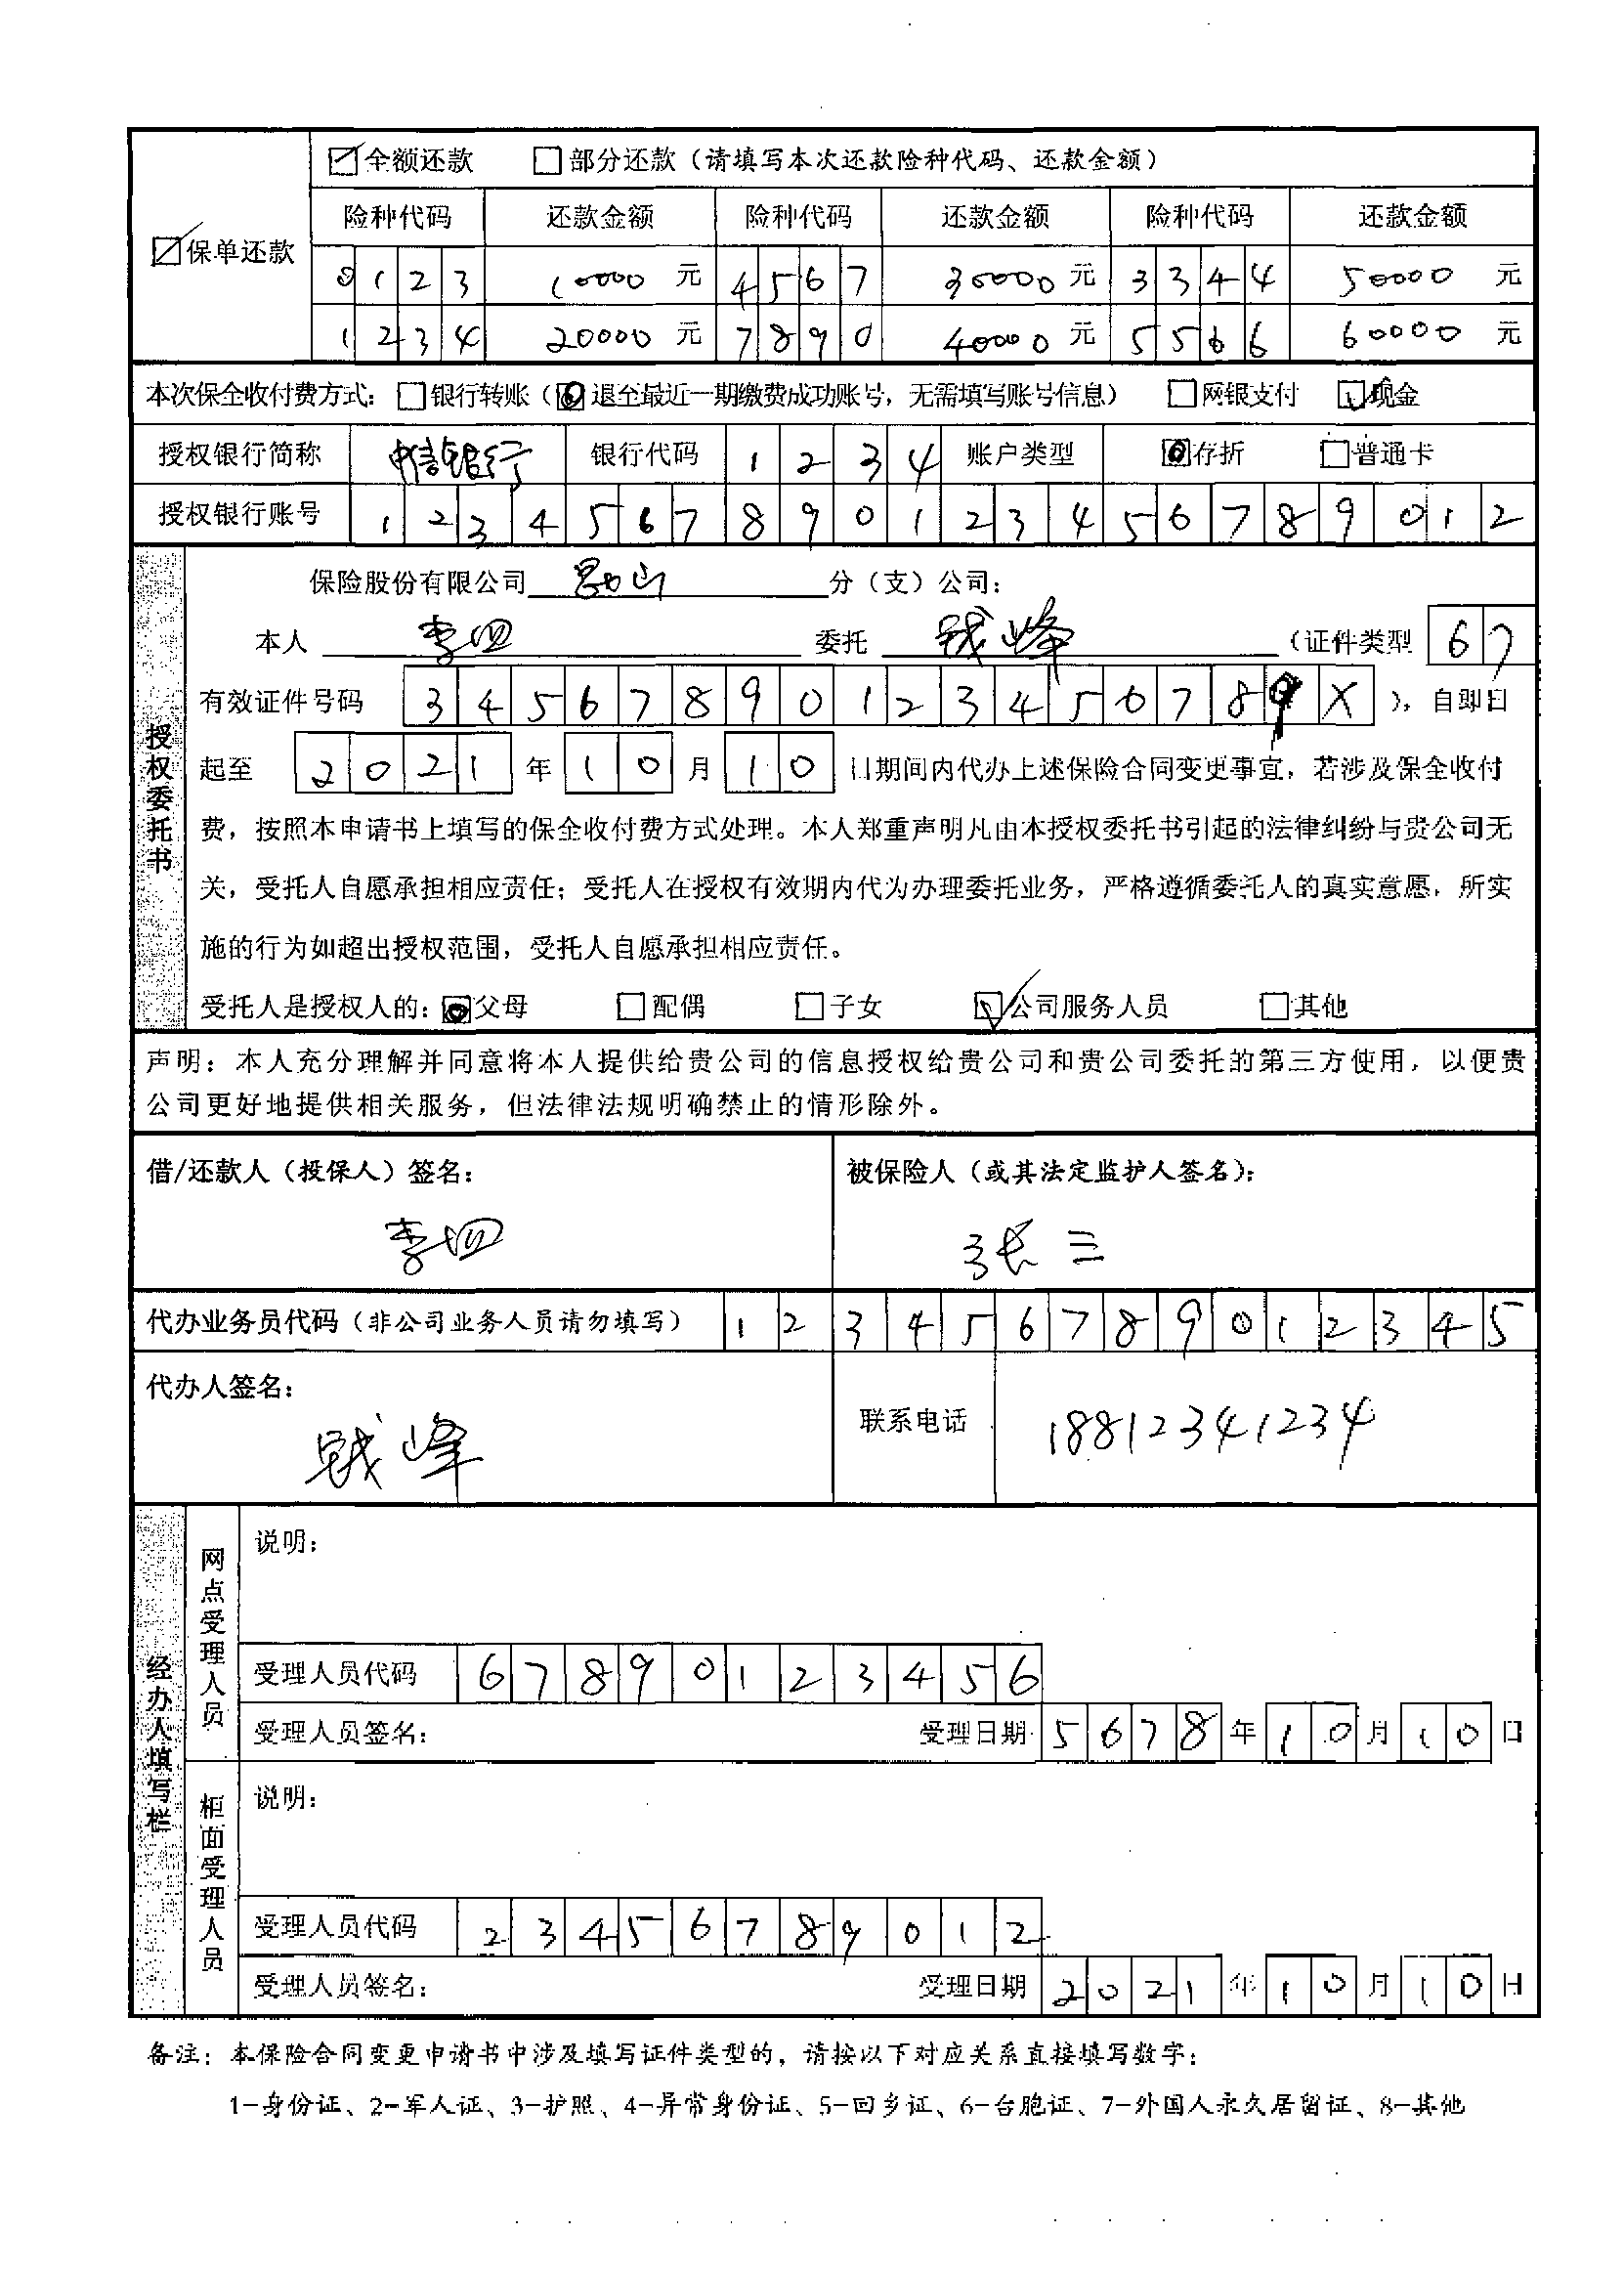 全额还款 部分还款（请填写本次还款险种代码、还款金额）
保单还款
险种代码 还款金额 险种代码 还款金额 险种代码 还款金额
0123 10000 元 4567 30000 元 3344 50000 元
1234 20000 元 7890 40000 元 5566 60000 元
本次保全收付费方式： 银行转账（ 退至最近一期缴费成功账号，无需填写账号信息） 网银支付 现金
授权银行简称 中信银行 银行代码 1234 账户类型 存折 普通卡
授权银行账号 1234567890123456789012
授权委托书
保险股份有限公司 昆山 分（支）公司：
本人 李四 委托 钱峰 （证件类型 67
有效证件号码 34567890123456789X ），自即日
起至 2021 年 10 月 10 日期间内代办上述保险合同变更事宜，若涉及保全收付
费，按照本申请书上填写的保全收付费方式处理。本人郑重声明凡由本授权委托书引起的法律纠纷与贵公司无
关，受托人自愿承担相应责任；受托人在授权有效期内代为办理委托业务，严格遵循委托人的真实意愿，所实
施的行为如超出授权范围，受托人自愿承担相应责任。
受托人是授权人的： 父母 配偶 子女 公司服务人员 其他
声明：本人充分理解并同意将本人提供给贵公司的信息授权给贵公司和贵公司委托的第三方使用，以便贵
公司更好地提供相关服务，但法律法规明确禁止的情形除外。
借/还款人（投保人）签名： 被保险人（或其法定监护人签名）：
李四 张三
代办业务员代码（非公司业务人员请勿填写） 123456789012345
代办人签名：
钱峰 联系电话 18812341234
经办人填写栏
网点受理人员
说明：
受理人员代码 67890123456
受理人员签名： 受理日期 5678 年 10 月 10 日
柜面受理人员
说明：
受理人员代码 23456789012
受理人员签名： 受理日期 2021 年 10 月 10 日
备注：本保险合同变更申请书中涉及填写证件类型的，请按以下对应关系直接填写数字：
1-身份证、2-军人证、3-护照、4-异常身份证、5-回乡证、6-台胞证、7-外国人永久居留证、8-其他